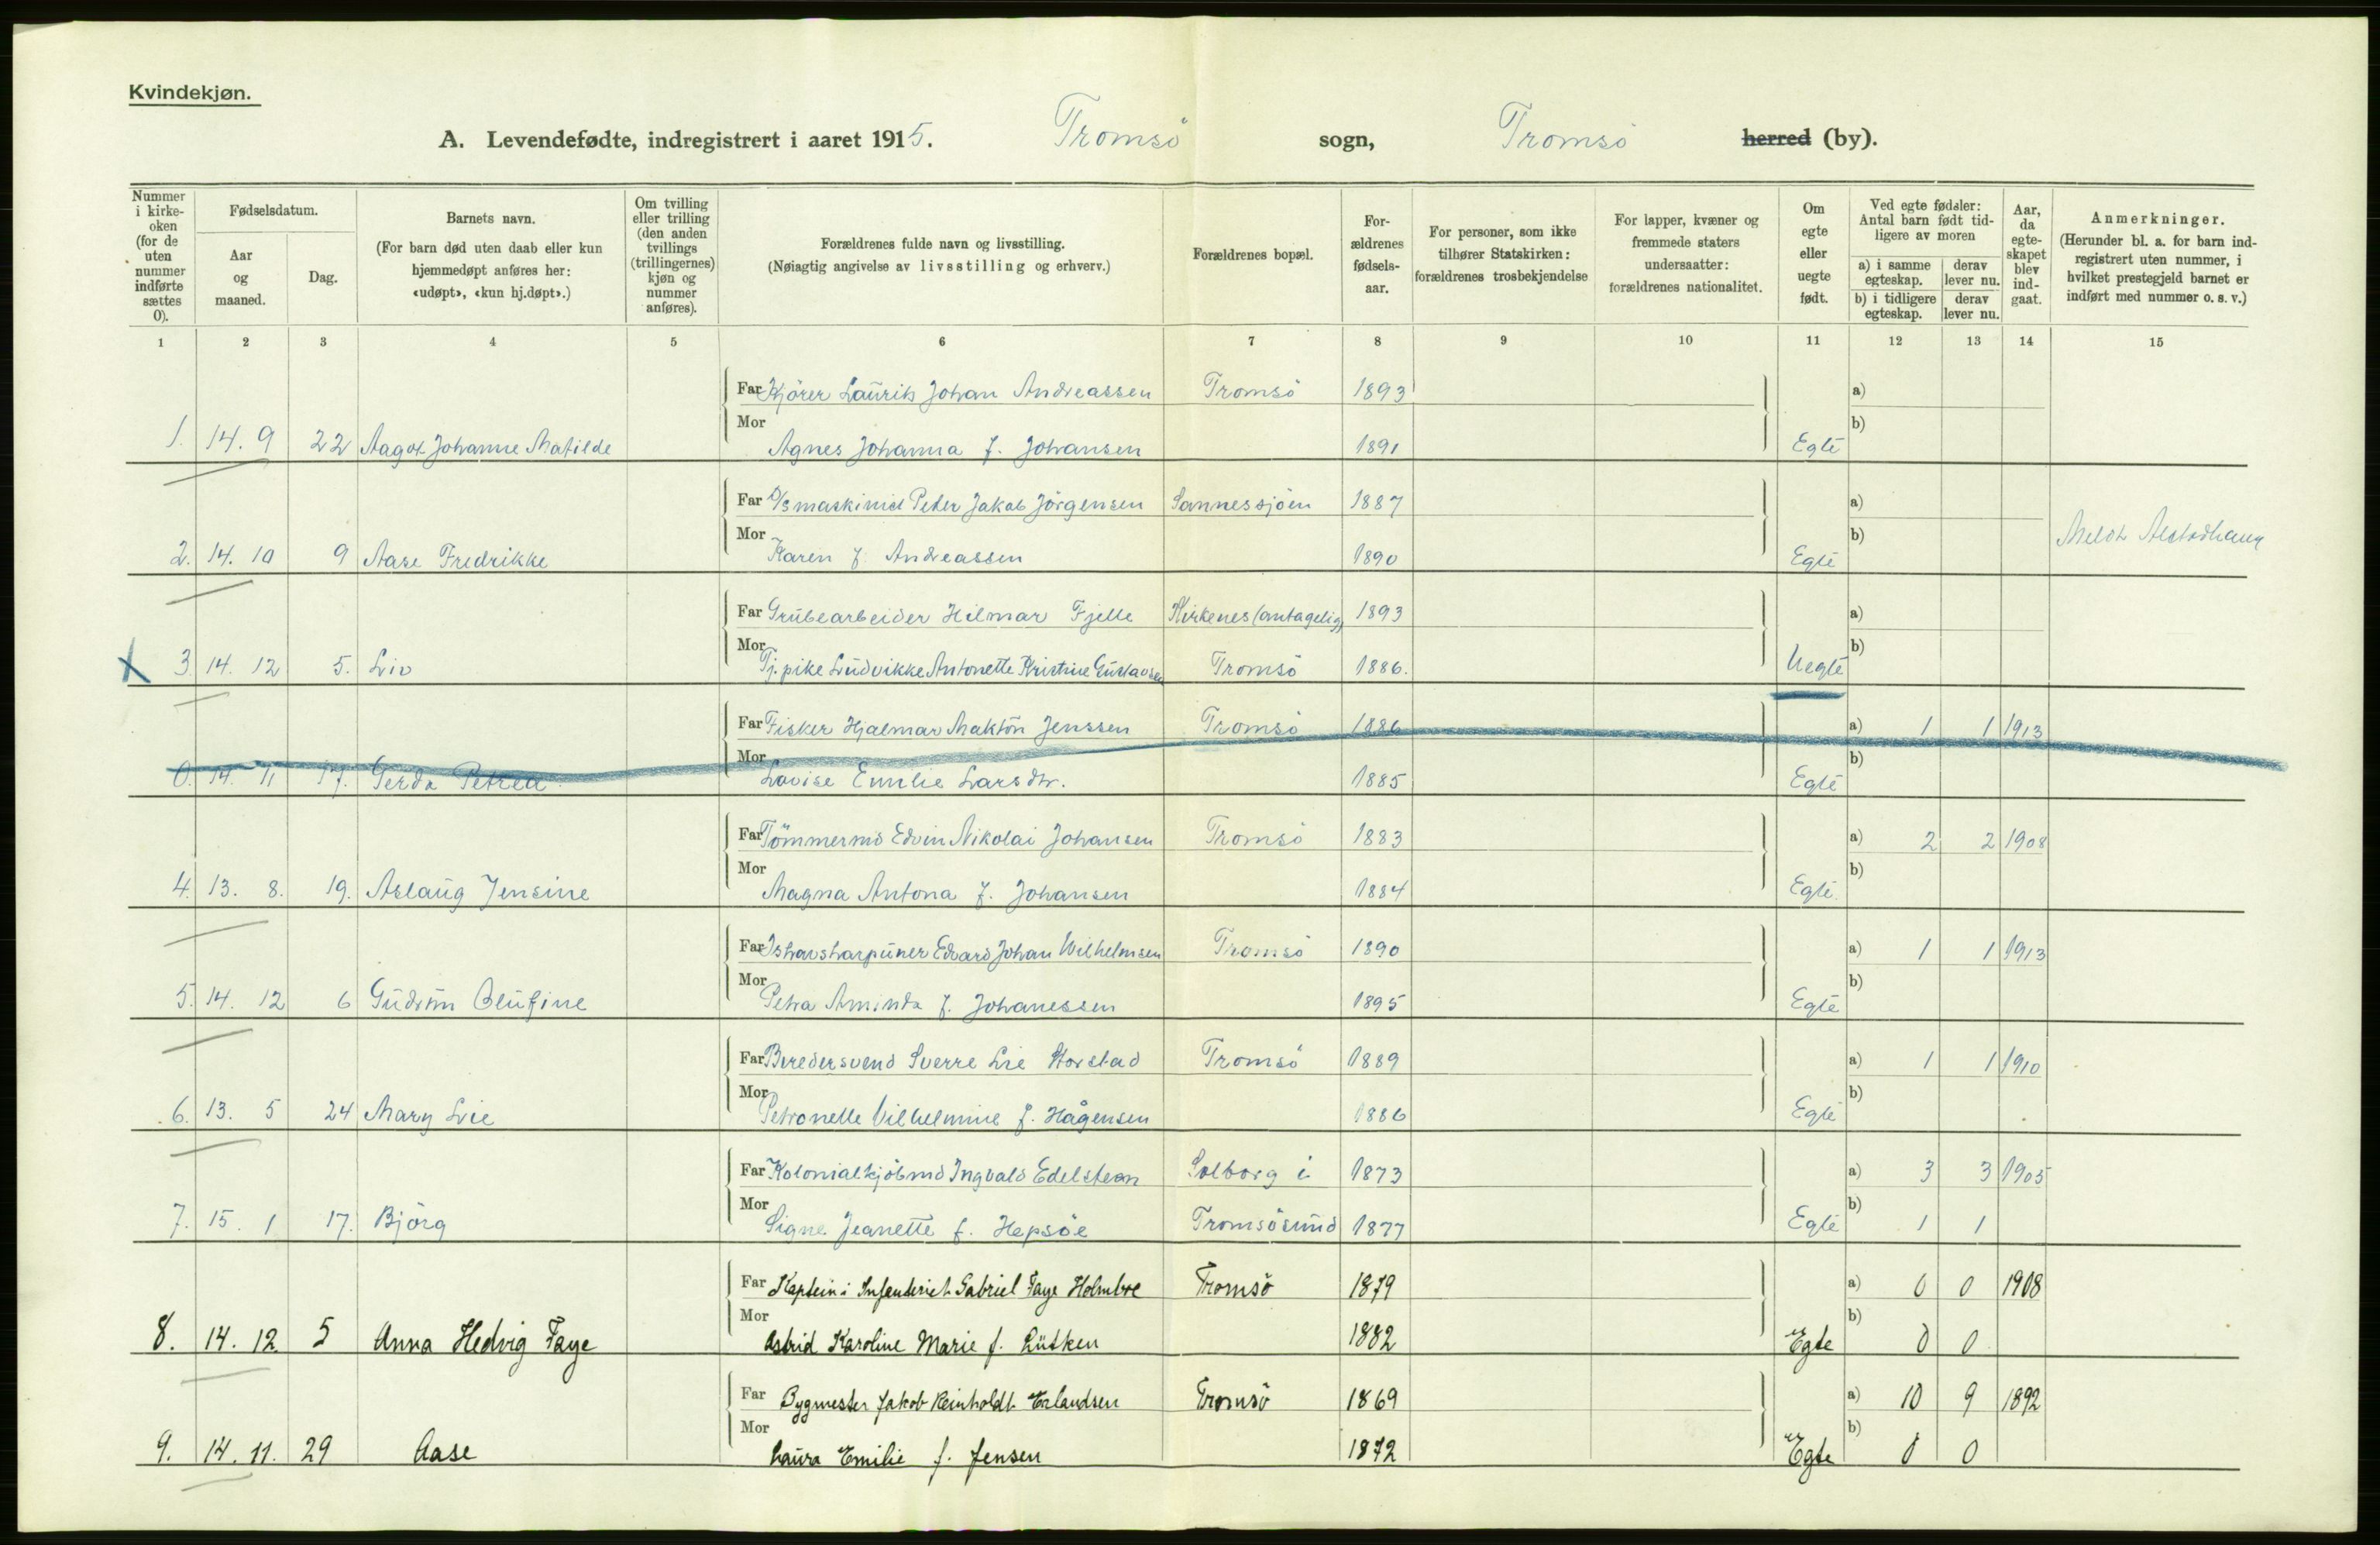 Kvindekjøn.
A. Levendefødte, indregistrert i aaret 1915. Tromsö sogn, Tromsö herred (by).
Nummer i kirke- oken (for de uten nummer indførte sættes 0).
Fødselsdatum.
Aar og maaned.
Dag.
Barnets navn.
(For barn død uten daab eller kun hjemmedøpt anføres her: «udøpt», «kun hj.døpt».)
Om tvilling eller trilling (den anden tvillings (trillingernes) kjøn og nummer anføres).
Forældrenes fulde navn og livsstilling.
(Nøiagtig angivelse av livsstilling og erhverv.)
Forældrenes bopæl.
For- ældrenes fødsels- aar.
For personer, som ikke tilhører Statskirken: forældrenes trosbekjendelse
For lapper, kvæner og fremmede staters undersaatter: forældrenes nationalitet.
Om egte eller uegte født.
Ved egte fødsler: Antal barn født tid- ligere av moren
a) i samme egteskap.
derav lever nu.
b) i tidligere egteskap.
derav lever nu.
Aar, da egte- skapet blev ind- gaat.
Anmerkninger.
(Herunder bl. a. for barn ind- registrert uten nummer, i hvilket prestegjeld barnet er indført med nummer o. s. v.)
1 2 3 4 5 6 7 8 9 10 11 12 13 14 15
Far Kjörer Laurits Johan Andreassen Tromsö 1893 a)
Mor b)
1. 14. 9 22 Aagot Johanne Matilde Agnes Johanna f. Johansen 1891 Egte
Far D/s maskinist Peter Jakob Jörgensen Sannessjöen 1887 a)
Mor b) Meldt Alstadhaug
2. 14. 10 9 Aase Fredrikke Karen f. Andreassen 1890 Egte
Far Grubearbeider Hilmar Fjelle Kirkenes (antagelig) 1893 a)
Mor b)
X 3 14. 12 5. Liv Tj.pike Ludvikke Antonette Kristine Gustavsen Tromsö 1886. Uegte
Far Fisker Hjalmar Jenssen Tromsö 1886 a) 1 1 1913
Mor b)
0. 14. 11 17. Gerda Petrea Lovise Emilie Larsdtr. 1885 Egte
Far Tömmermd Edvin Nikolai Johansen Tromsö 1883 a) 2 2 1908
Mor b)
4. 13. 8. 19. Aslaug Jensine Magna Antona f. Johansen 1884 Egte.
Far Ishavsharpuner Edvard Johan Wilhelmsen Tromsö 1890 a) 1 1 1913
Mor b)
5. 14. 12 6 Gudrun Olufine Petra Aminda f. Johanessen 1895 Egte
Far Beredersvend Sverre Lie Storstad Tromsö 1889 a) 1 1 1910
Mor b)
6. 13. 5 24 Mary Lie Petronelle Vilhelmine f. Hågensen 1886 Egte
Far Kolonialkjöbmd Ingvald Edelsteen Solborg i 1873 a) 3 3 1905
Mor b)
7. 15. 1 17. Björg Signe Jeanette f. Hepsöe Tromsösund 1877 Egte 1 1
Far Kaptein i Infanteriet Gabriel Faye Holmboe Tromsö 1879 a) 0 0 1908
Mor b)
8. 14. 12. 5 Anna Hedvig Faye Astrid Karoline Marie f. Lütken 1882 Egte 0 0
Far Bygmester Jakob Reinholdt Erlandsen Tromsö 1869 a) 10 9 1892
Mor b)
9. 14. 11. 29 Aase Laura Emilie f. Jensen 1872 Egte 0 0